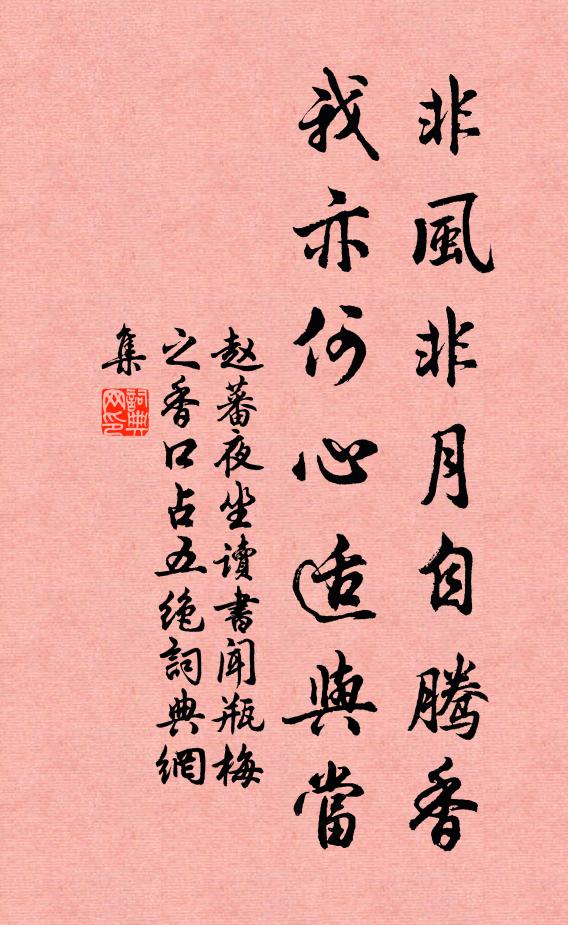 非風非月自騰香
我亦何心適與當
赵蕃夜坐讀書聞瓶梅
之香口占五绝詞典網
集
詞典网印